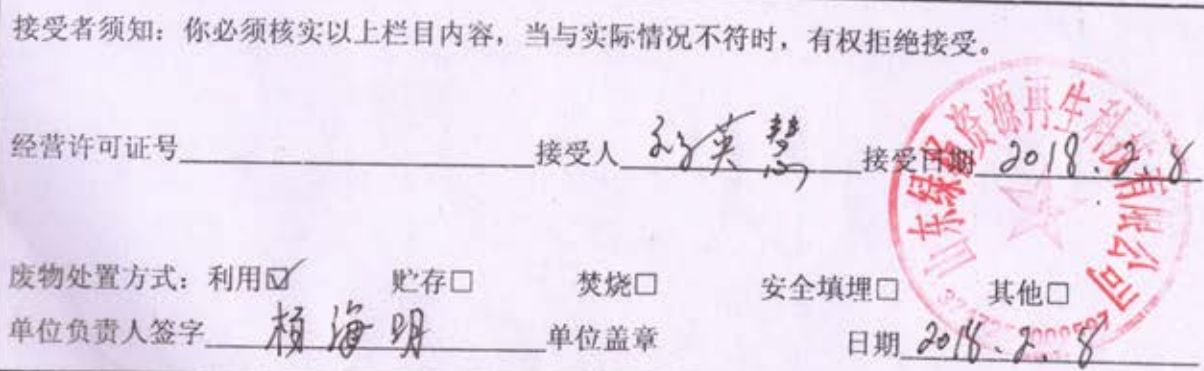 接受者须知：你必须核实以上栏目内容，当与实际情况不符时，有权拒绝接受。
经营许可证号 接受人 英慧 接受日期 2018.2.8
山东绿 资源再生科技有限公司
废物处置方式：利用☑ 贮存□ 焚烧□ 安全填埋□ 其他□
单位负责人签字 海明 单位盖章 日期 2018.2.8